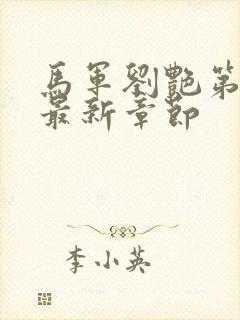 馬軍劉艷第
最新章節
李小英